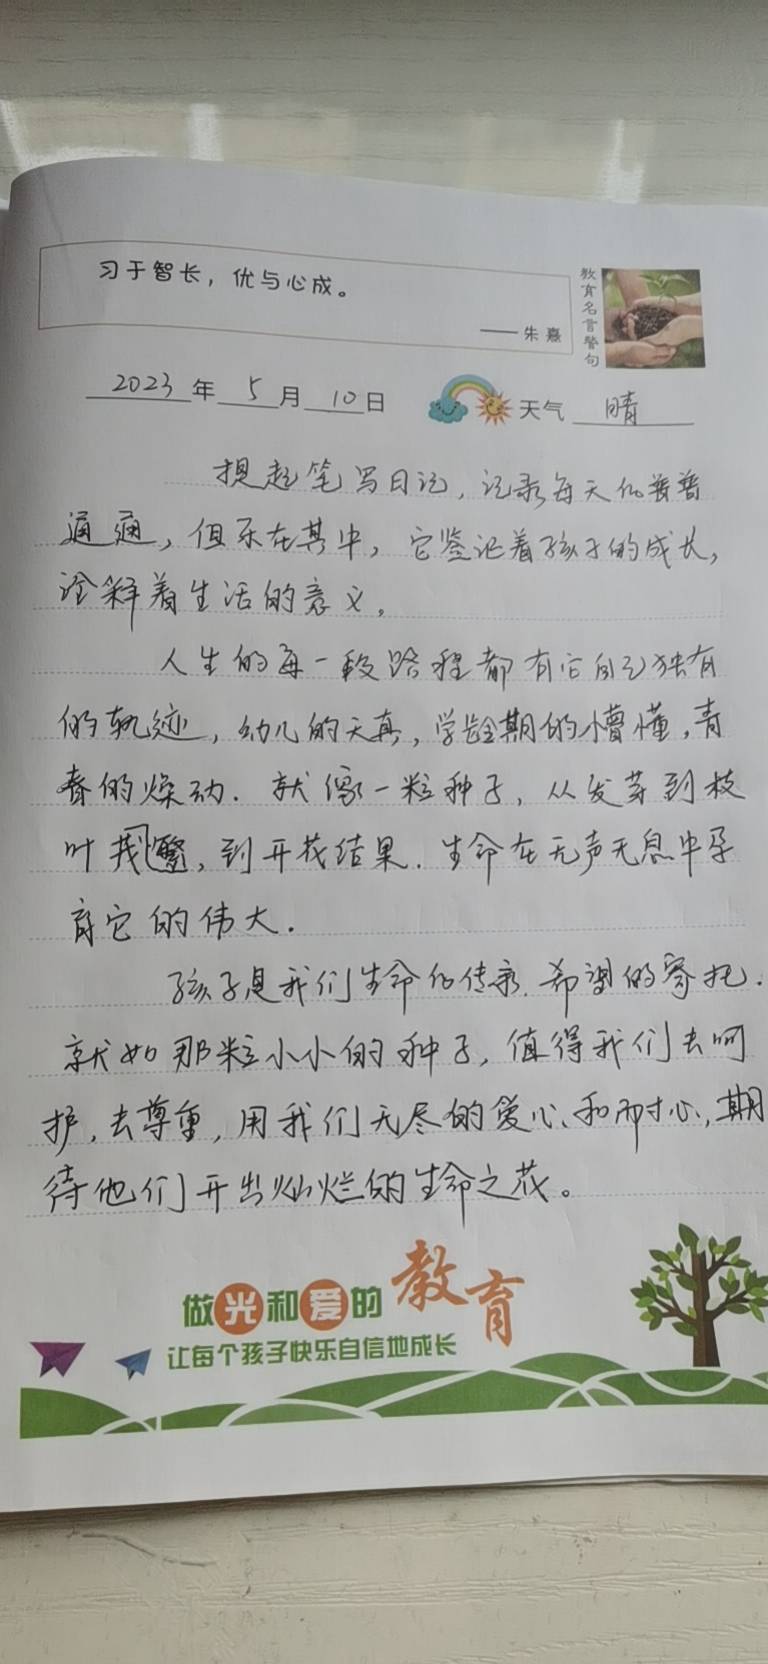 习于智长，优与心成。
——朱熹
教育名言警句
2023年5月10日 天气 晴
提起笔写日记，记录每天的普普
通通，但乐在其中，它鉴记着孩子的成长，
诠释着生活的意义。
人生的每一段路程都有它自己独有
的轨迹，幼儿的天真，学龄期的懵懂，青
春的燥动．就像一粒种子，从发芽到枝
叶茂繁，到开花结果．生命在无声无息中孕
育它的伟大．
孩子是我们生命的传承．希望的寄托．
就如那粒小小的种子，值得我们去呵
护，去尊重，用我们无尽的爱心、和耐心，期
待他们开出灿烂的生命之花。
做光和爱的教育
让每个孩子快乐自信地成长